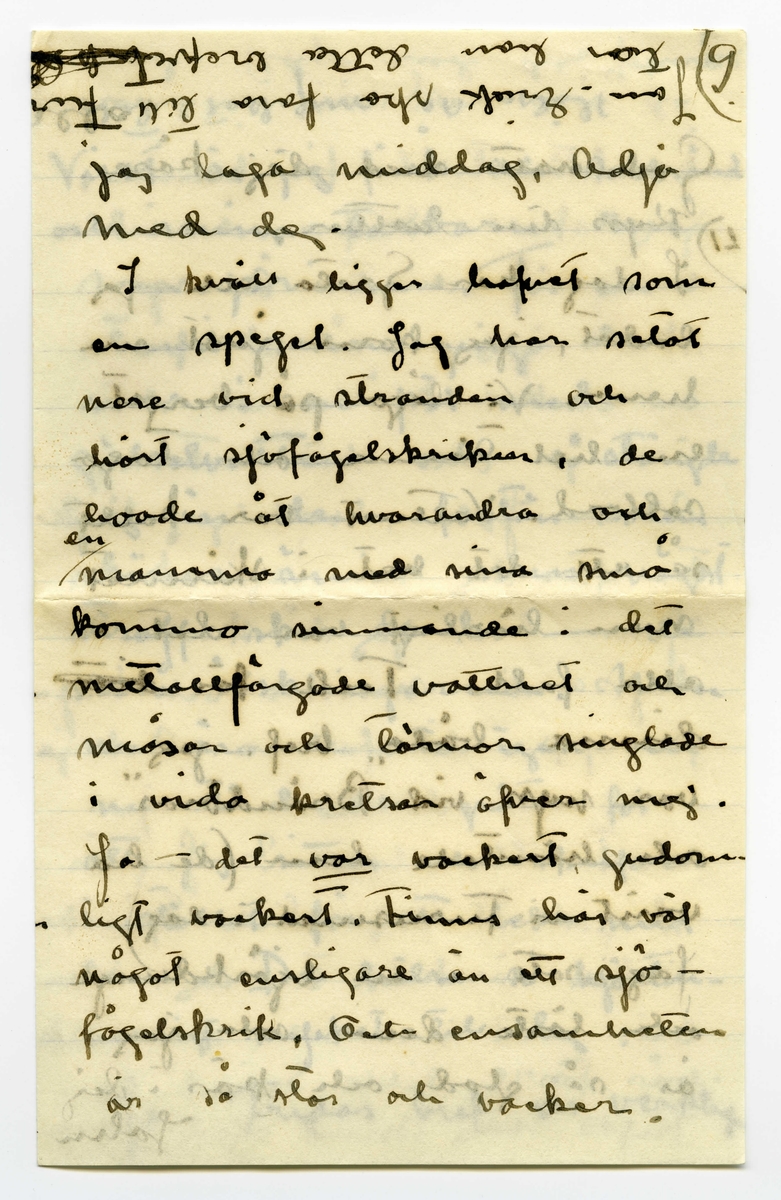 6)
Jan-Erik ska fara till
tar han detta brefvet
jag laga middag. Adjö
med dej.
I kväll ligger hafvet som
en spegel. Jag har setat
nere vid stranden och
hört sjöfågelskriken, de
hoade åt hvarandra och
en mamma med sina små
kommo simmande i det
metallfärgade vattnet och
måsar och tärnor singlade
i vida kretsar öfver mej.
Ja – det var vackert, gudom-
ligt vackert. Finns här väl
något ensligare än ett sjö-
fågelskrik. Och ensamheten
är så stor och vacker.